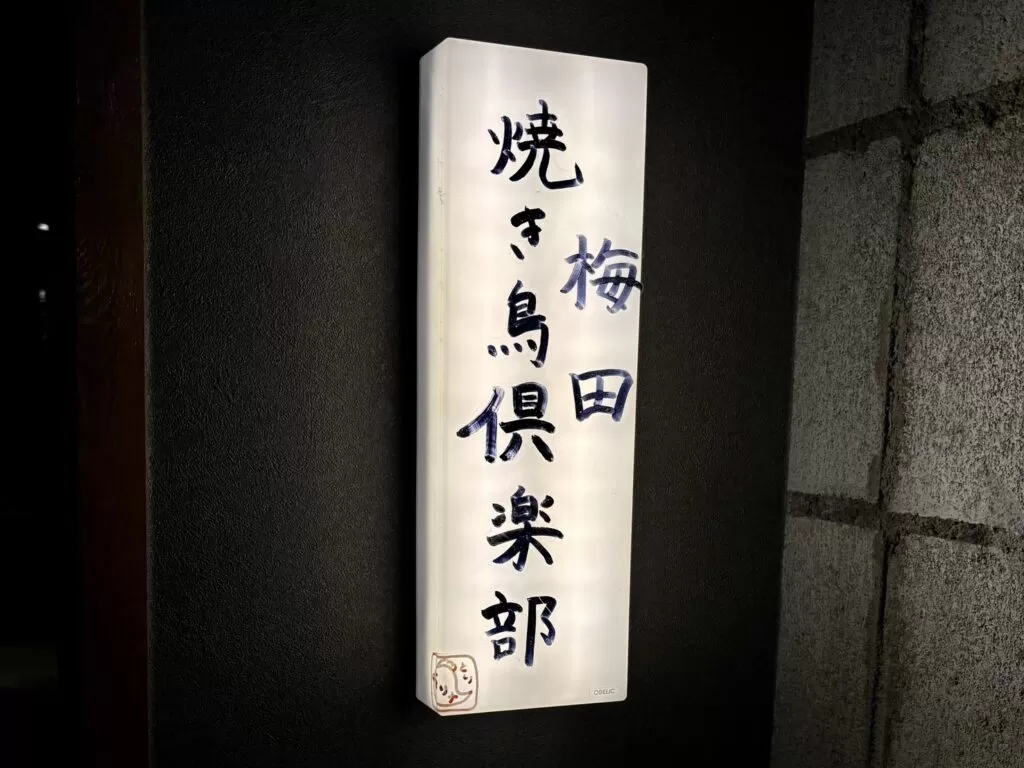 梅田
焼き鳥倶楽部
ODELIC